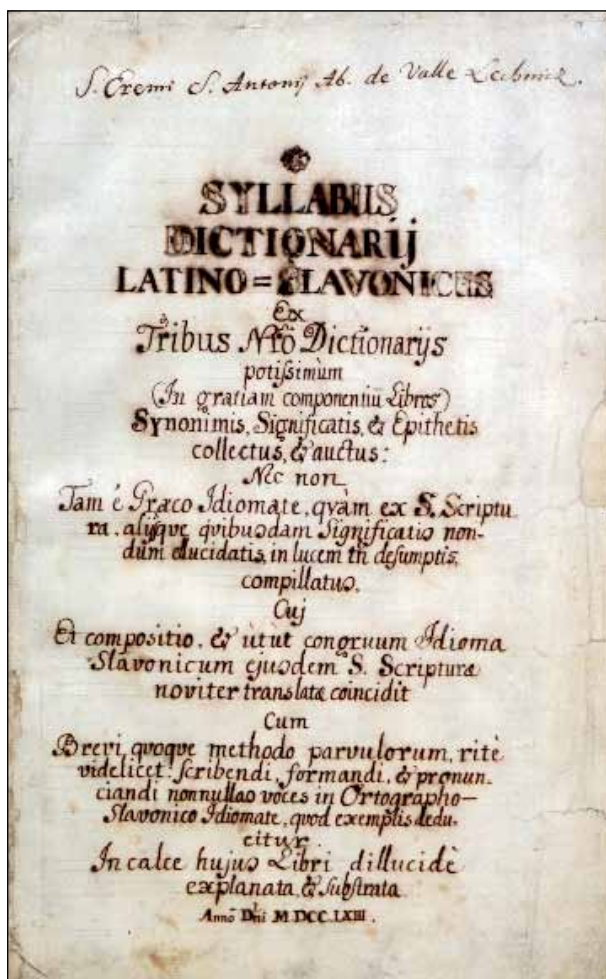 S. Eremi S. Antonij Ab. de Valle Lechnick.
SYLLABUS
DICTIONARIJ
LATINO=SLAVONICUS
Ex
Tribus Nrõ Dictionarijs
potissimùm
(In gratiam componentiũ Libros)
Synonimis, Significatis, & Epithetis
collectus, & auctus:
Nec non
Tam è Græco Idiomate, quàm ex S. Scriptu
ra, alijsque quibusdam Significatis non-
dum elucidatis, in lucem tñ desumptis,
compillatus,
Cuj
Et compositio, & utut congruum Idioma
Slavonicum ejusdem S. Scripturæ
noviter translatæ coincidit
Cum
Brevi quoque methodo parvulorum, ritè
videlicet scribendi, formandi, & pronun-
ciandi nonnullas voces in Ortographo-
Slavonico Idiomate, quod exemplis dedu-
citur.
In calce hujus Libri dillucidè
explanata & substrata.
Annõ Dñi MDCC.LXIII.